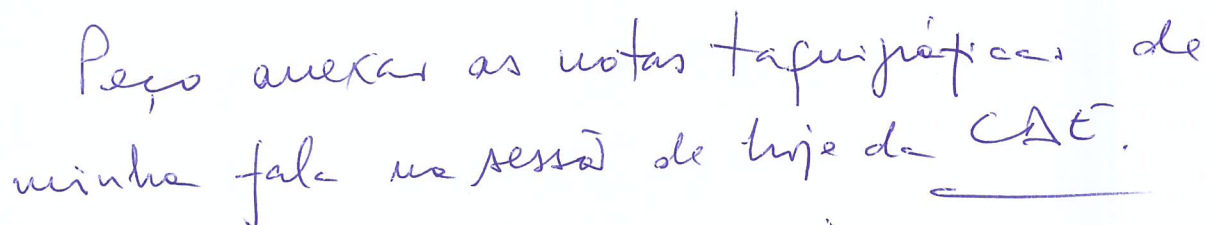 Peço anexar as notas taquigráficas de
minha fala na sessão de hoje da CAE.